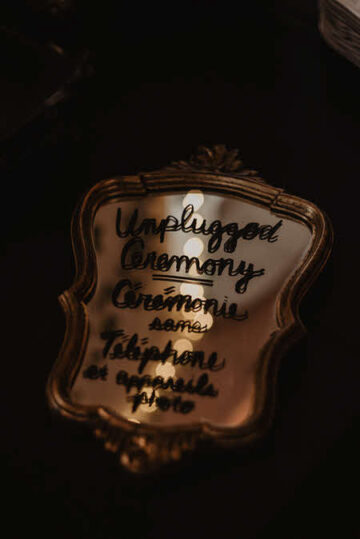 Unplugged
Ceremony
Cérémonie
sans
Téléphone
et appareils
photo